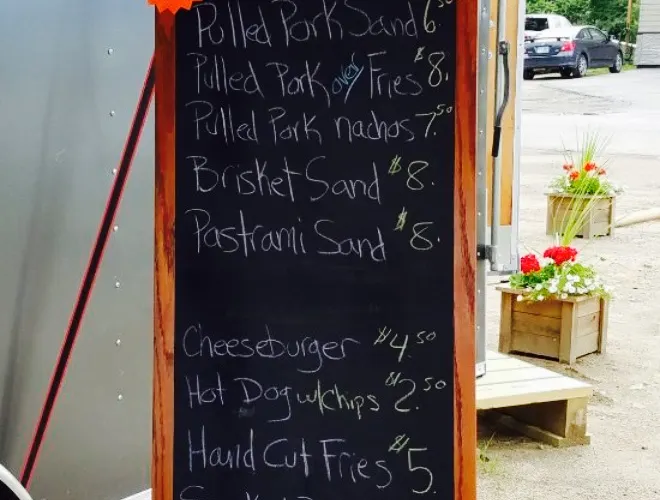 Pulled Pork Sand 6.50
Pulled Pork over Fries $8.
Pulled Pork nachos 7.50
Brisket Sand $8.
Pastrami Sand $8.
Cheeseburger $4.50
Hot Dog w/chips $2.50
Hand Cut Fries $5.